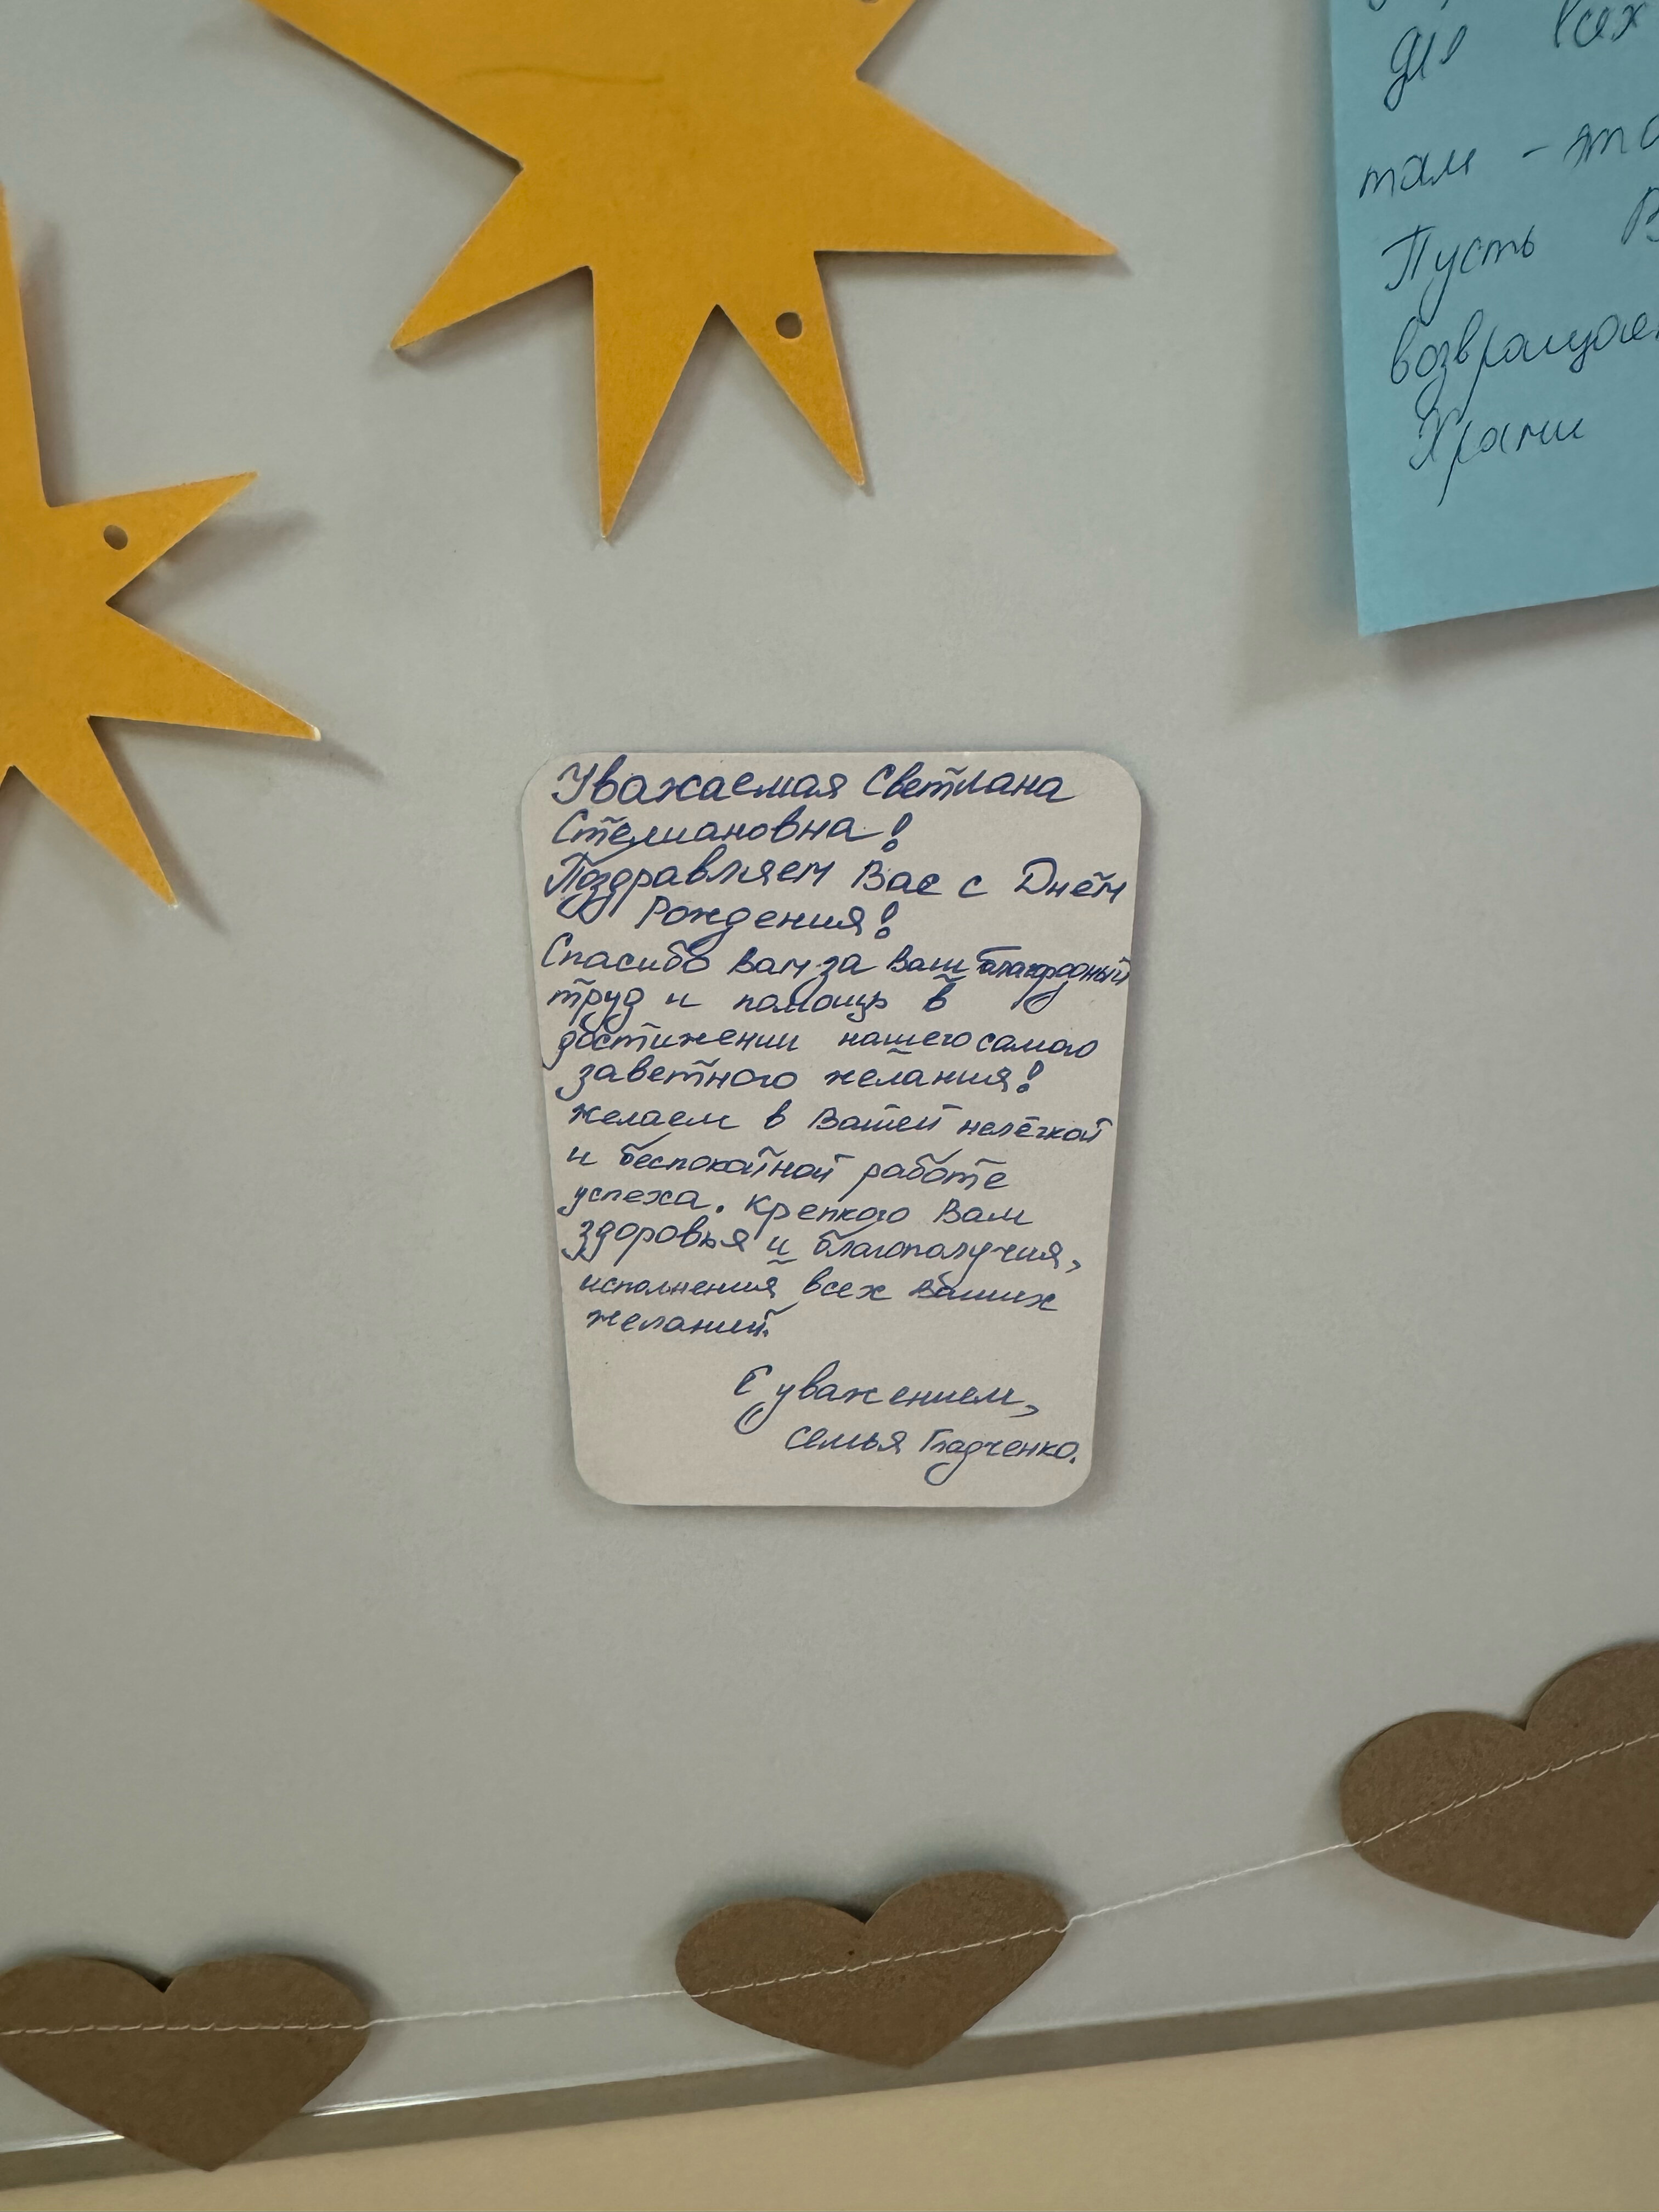 для всех
там - это
Пусть В
возвращает
Храни
Уважаемая Светлана
Стелиановна!
Поздравляем Вас с Днём
Рождения!
Спасибо Вам за Ваш благородный
труд и помощь в
достижении нашего самого
заветного желания!
Желаем в Вашей нелёгкой
и беспокойной работе
успеха. Крепкого Вам
здоровья и благополучия,
исполнения всех Ваших
желаний.
С уважением,
семья Гладченко.